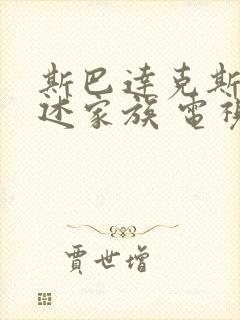 斯巴達克斯
述家族 電視
賈世增